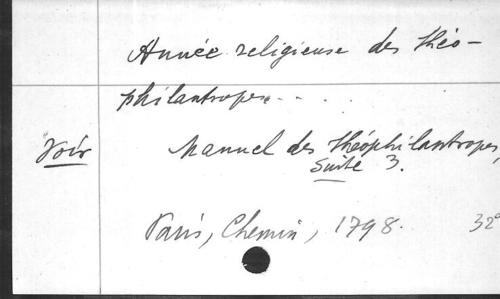 Année religieuse des Théo-
philantropes....
Voir Manuel des Théophilantropes,
Suite 3.
Paris, Chemin, 1798. 32°